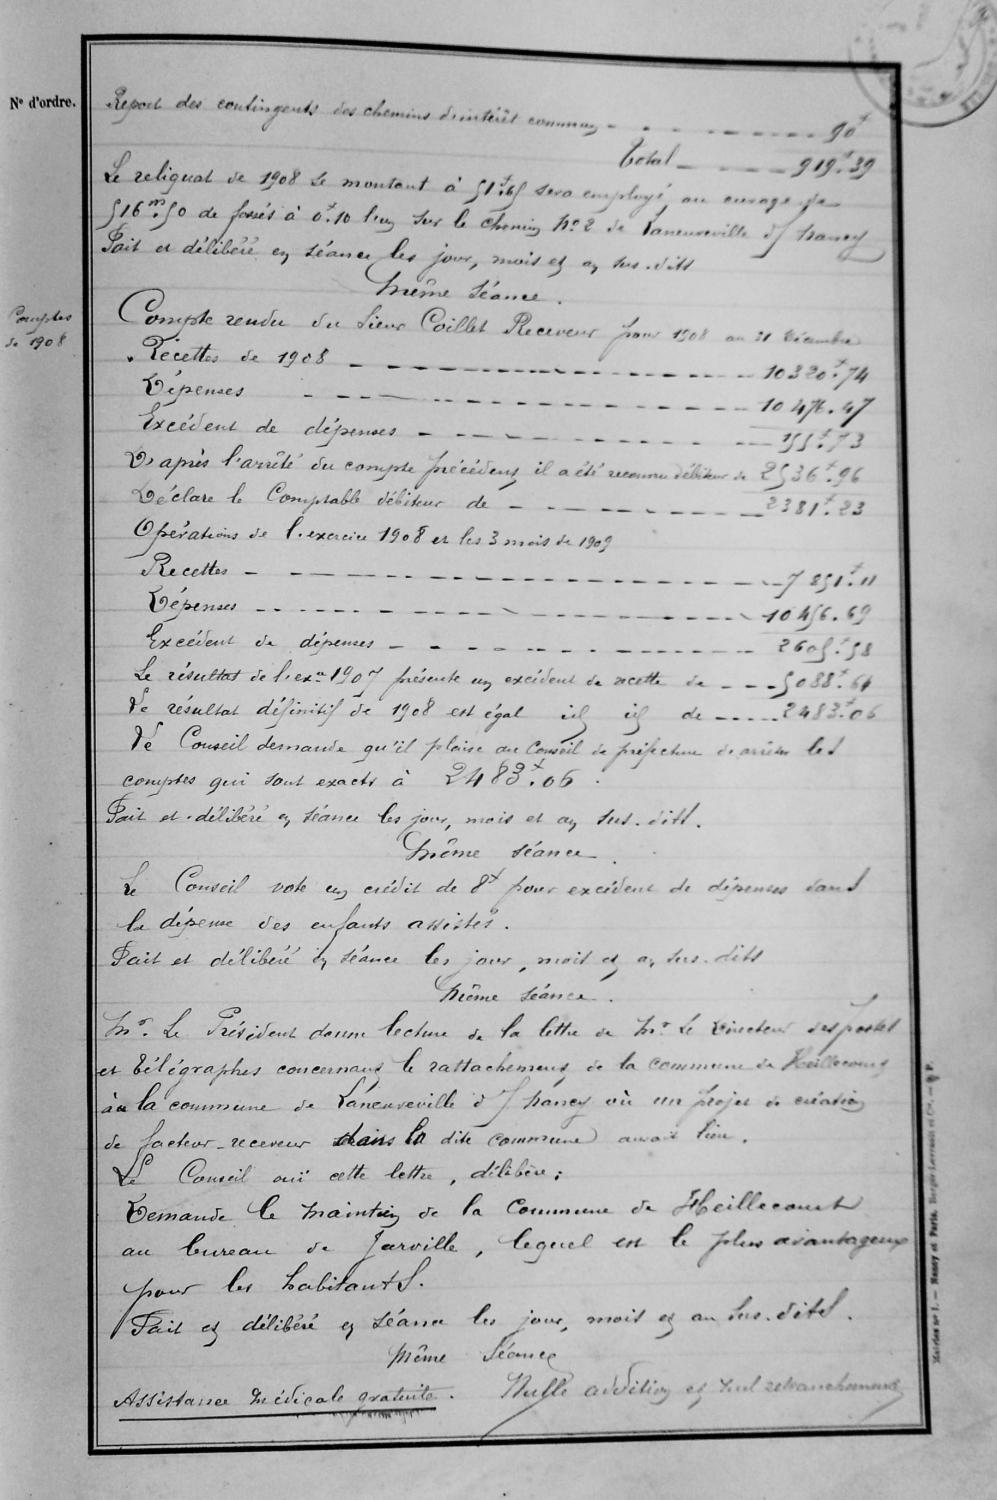 N° d'ordre.
Report des contingents des chemins d'intérêt commun 90f
Total 919f.39
Le reliquat de 1908 se montant à 51f.65 sera employé au curage de
516m.50 de fossés à 0f.10 l'un sur le chemin No 2 de Laneuveville df Nancy
Fait et délibéré en séance les jour, mois et an sus-dits
Même séance.
Comptes de 1908
Compte rendu du Sieur Coillet Receveur pour 1908 au 31 Décembre
Recettes de 1908 10320f.74
Dépenses 10476.47
Excédent de dépenses 155f.73
D'après l'arrêté du compte précédent il a été reconnu débiteur de 2536f.96
Déclare le Comptable débiteur de 2381f.23
Opérations de l'exercice 1908 et les 3 mois de 1909
Recettes 7851f.11
Dépenses 10456.69
Excédent de dépenses 2605f.58
Le résultat de l'exce 1907 présente un excédent de recette de 5088f.64
Le résultat définitif de 1908 est égal de 2483f.06
Le Conseil demande qu'il plaise au Conseil de préfecture d'arrêter les
comptes qui sont exacts à 2483f.06.
Fait et délibéré en séance les jour, mois et an sus-dits.
Même séance.
Le Conseil vote un crédit de 8f pour excédent de dépenses dans
la dépense des enfants assistés.
Fait et délibéré en séance les jour, mois et an sus-dits
Même séance.
Mr. Le Président donne lecture de la lettre de Mr Le Directeur des postes
et télégraphes concernant le rattachement de la commune de Heillecourt
à la commune de Laneuveville df Nancy où un projet de création
de facteur-receveur dans la dite commune aurait lieu.
Le Conseil ouï cette lettre, délibère:
Demande le maintien de la Commune de Heillecourt
au bureau de Jarville, lequel est le plus avantageux
pour les habitants.
Fait et délibéré en séance les jour, mois et an sus-dits.
Même Séance
Assistance médicale gratuite. Nulle addition et nul retranchement
Mairies n° 1. — Nancy et Paris. Berger-Levrault et Cie.